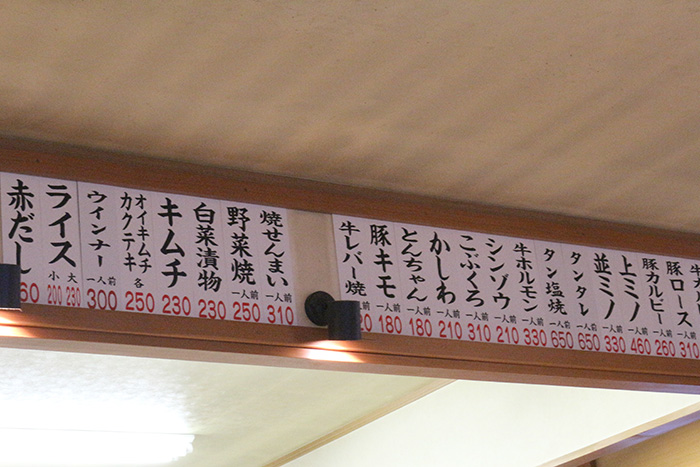 豚ロース 一人前 310
豚カルビー 一人前 260
上ミノ 一人前 460
並ミノ 一人前 330
タンタレ 一人前 650
タン塩焼 一人前 650
牛ホルモン 一人前 330
シンゾウ 一人前 210
こぶくろ 一人前 310
かしわ 一人前 210
とんちゃん 一人前 180
豚キモ 一人前 180
牛レバー焼
焼せんまい 一人前 310
野菜焼 一人前 250
白菜漬物 230
キムチ 230
オイキムチ
カクテキ 各 250
ウインナー 一人前 300
ライス 大 230 小 200
赤だし